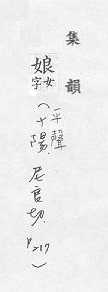 集韻
娘
女字
（平聲
十陽. 尼良切. P217）